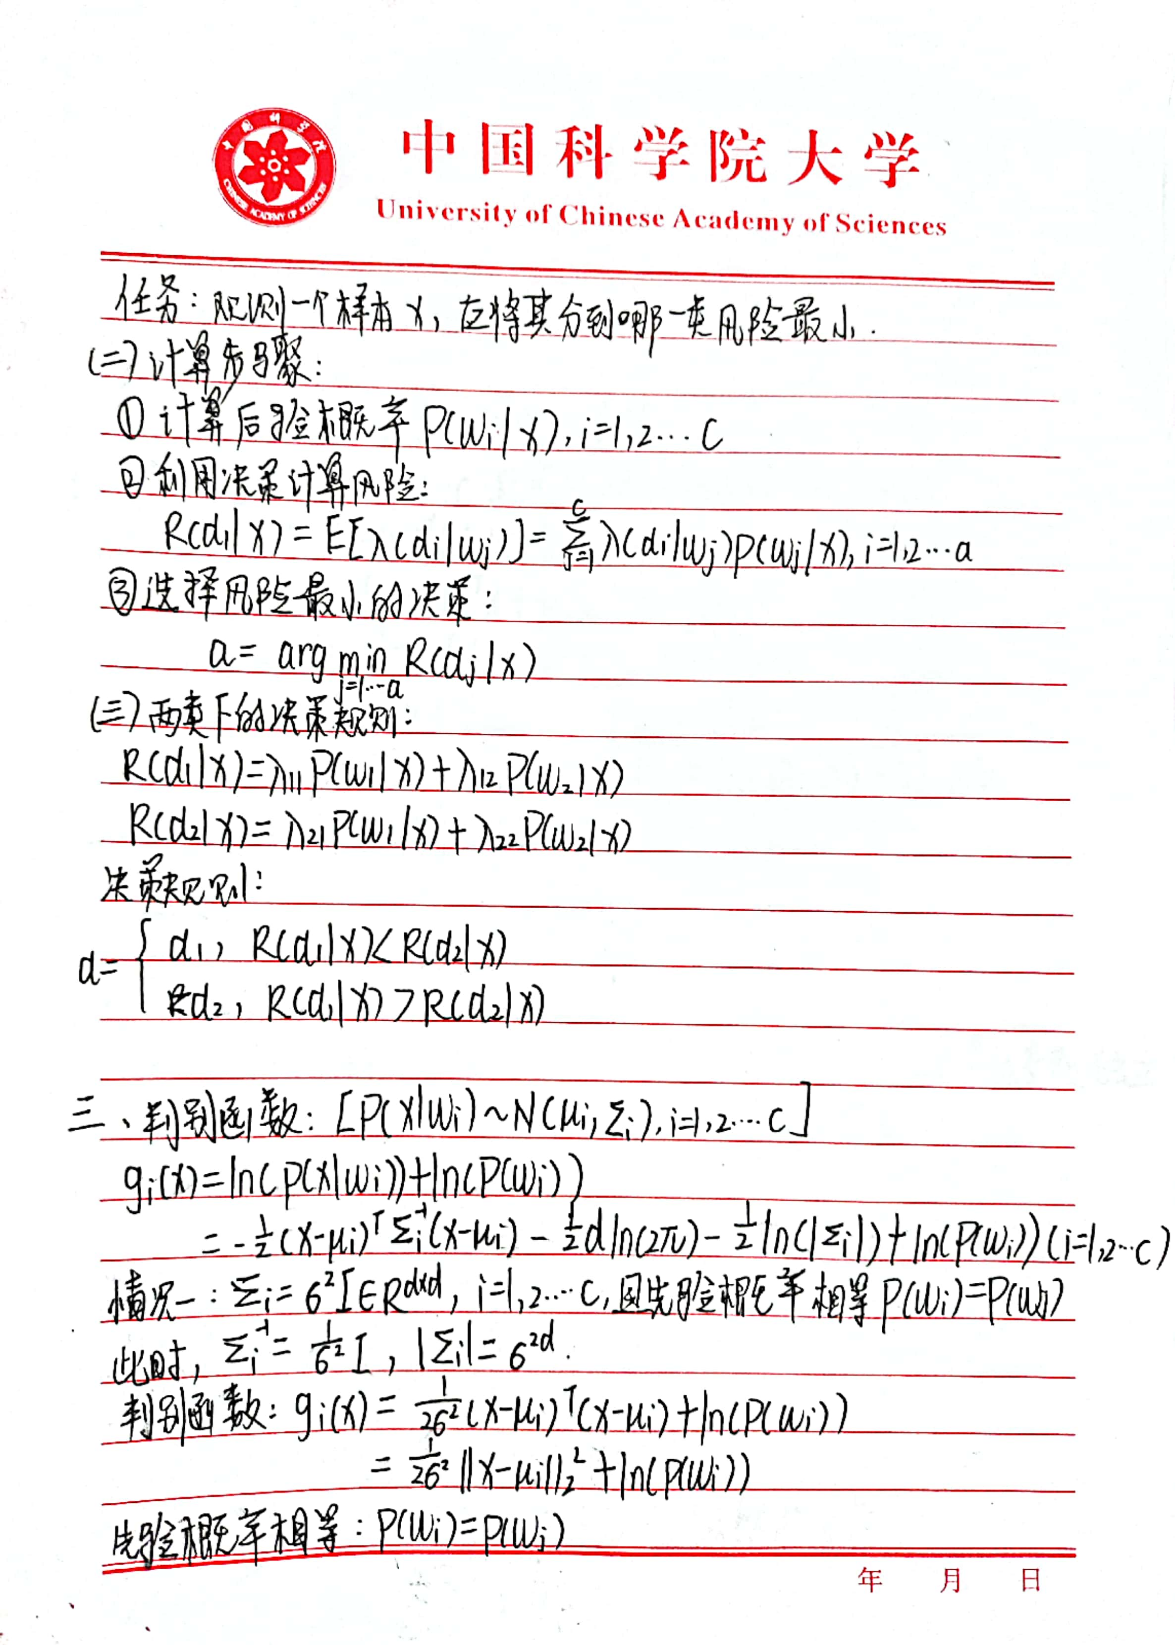 中国科学院大学
University of Chinese Academy of Sciences
任务：观测一个样本 x，应将其分到哪一类风险最小．
(二) 计算步骤：
① 计算后验概率 P(wi|x), i=1,2…c
② 利用决策计算风险：
R(αi|x) = E[λ(αi|wj)] = ∑_{j=1}^{c} λ(αi|wj)p(wj|x), i=1,2…a
③ 选择风险最小的决策：
a = arg min_{j=1…a} R(αj|x)
(三) 两类下的决策规则：
R(α1|x) = λ11 P(w1|x) + λ12 P(w2|x)
R(α2|x) = λ21 P(w1|x) + λ22 P(w2|x)
决策规则：
α = { α1, R(α1|x) < R(α2|x)
α2, R(α1|x) > R(α2|x)
三、判别函数：[P(x|wi) ~ N(μi, Σi), i=1,2…c]
gi(x) = ln(p(x|wi)) + ln(P(wi))
= -1/2 (x-μi)^T Σi^{-1} (x-μi) - 1/2 d ln(2π) - 1/2 ln(|Σi|) + ln(P(wi)) (i=1,2…c)
情况一：Σi = σ²I ∈ R^{d×d}, i=1,2…c, 且先验概率相等 P(wi)=P(wj)
此时, Σi^{-1} = 1/σ² I, |Σi| = σ^{2d}.
判别函数：gi(x) = 1/2σ² (x-μi)^T (x-μi) + ln(P(wi))
= 1/2σ² ||x-μi||₂² + ln(P(wi))
先验概率相等：P(wi)=P(wj)
年 月 日